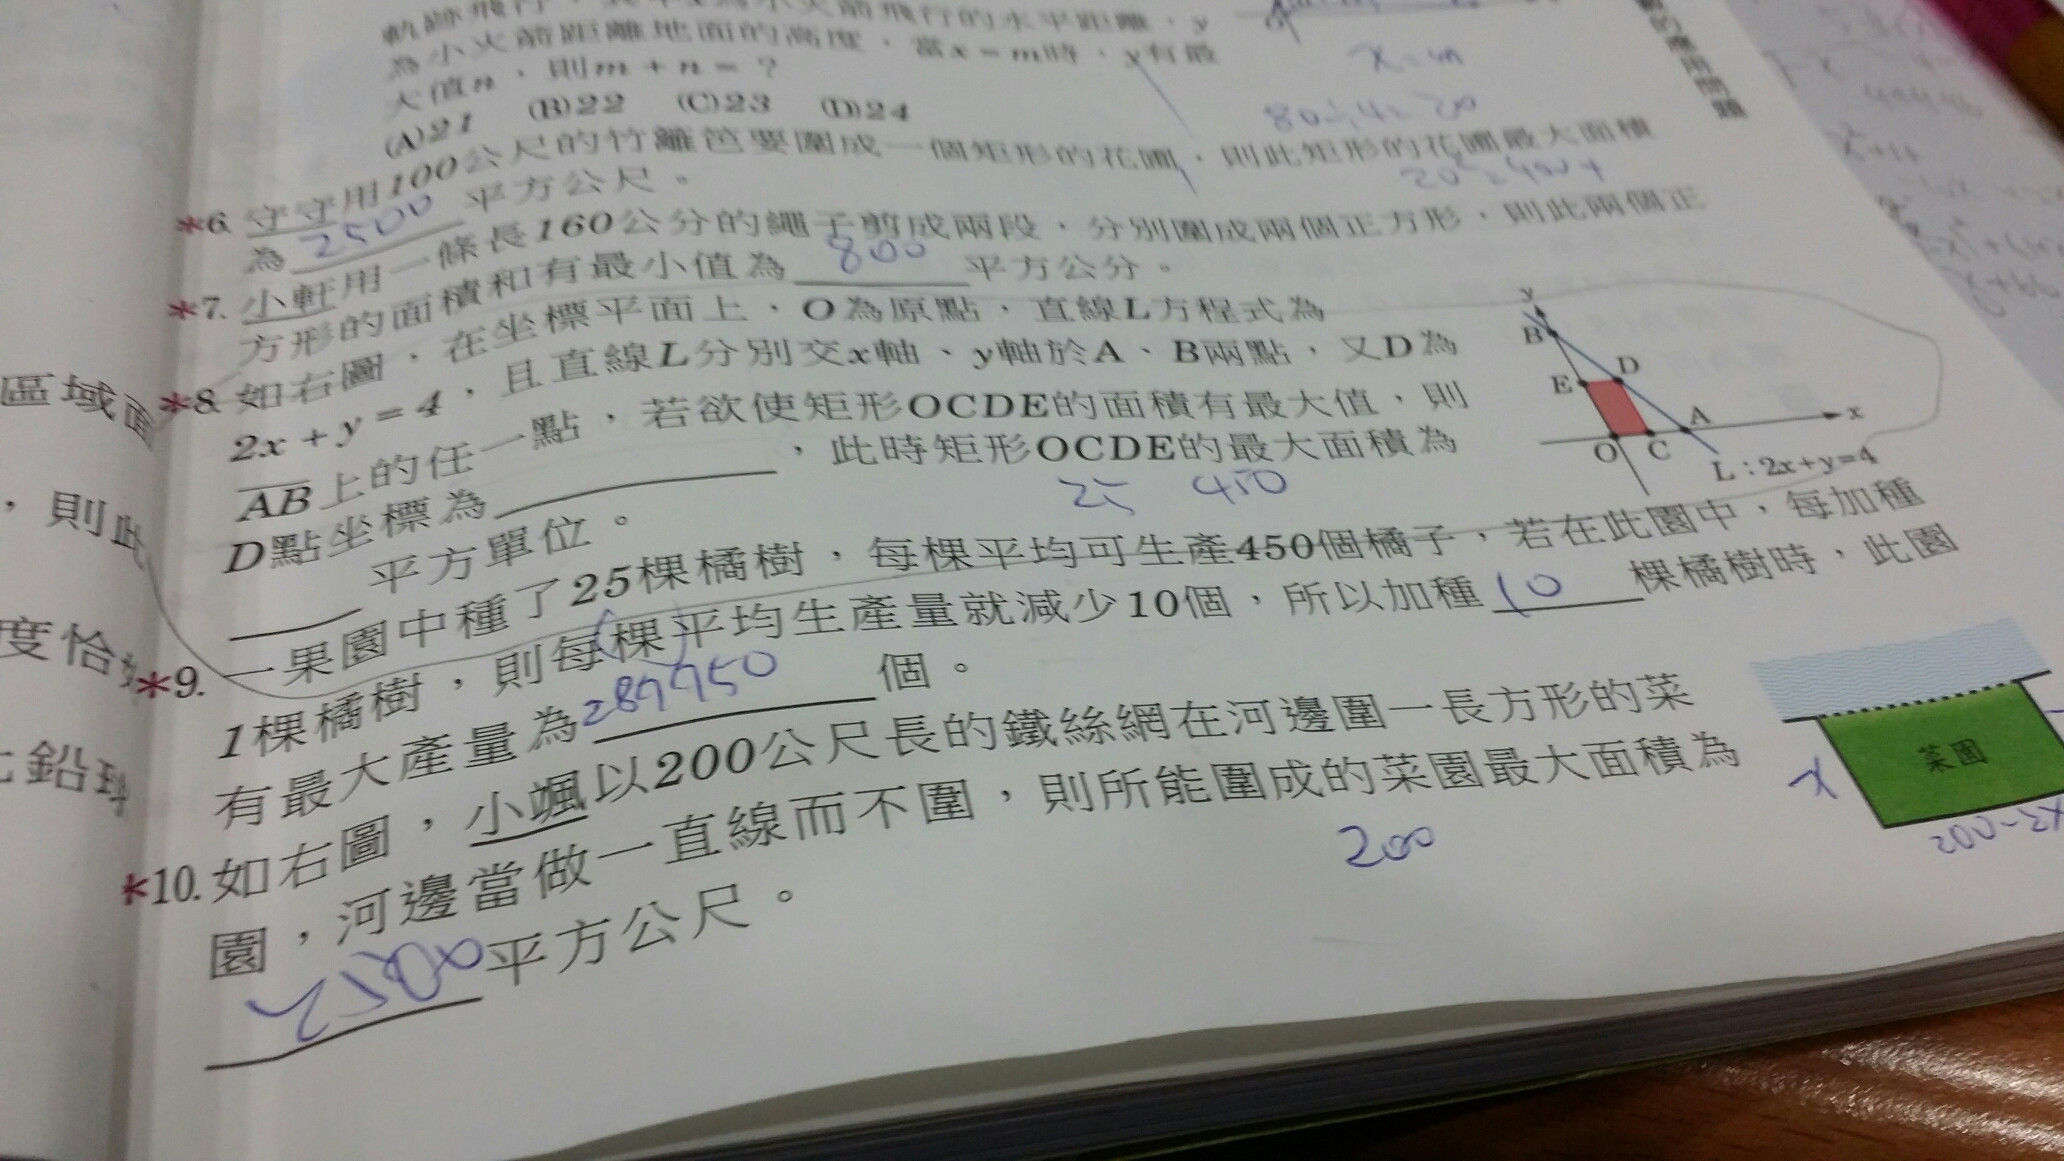 軌跡飛行，其中x為小火箭飛行的水平距離，y
為小火箭距離地面的高度，當x＝m時，y有最
大值n，則m＋n＝？
(A)21 (B)22 (C)23 (D)24
x=m
80÷4=20
*6. 守守用100公尺的竹籬笆要圍成一個矩形的花圃，則此矩形的花圃最大面積
為 2500 平方公尺。
*7. 小軒用一條長160公分的繩子剪成兩段，分別圍成兩個正方形，則此兩個正
方形的面積和有最小值為 800 平方公分。
*8. 如右圖，在坐標平面上，O為原點，直線L方程式為
2x＋y＝4，且直線L分別交x軸、y軸於A、B兩點，又D為
AB上的任一點，若欲使矩形OCDE的面積有最大值，則
D點坐標為，此時矩形OCDE的最大面積為
平方單位。
y
B
D
E
A
x
O
C
L：2x+y=4
25 450
*9. 一果園中種了25棵橘樹，每棵平均可生產450個橘子，若在此園中，每加種
1棵橘樹，則每棵平均生產量就減少10個，所以加種 10 棵橘樹時，此園
有最大產量為 個。
*10. 如右圖，小颯以200公尺長的鐵絲網在河邊圍一長方形的菜
園，河邊當做一直線而不圍，則所能圍成的菜園最大面積為
平方公尺。
200
菜園
x
200-2x
區域面
，則此
度恰好